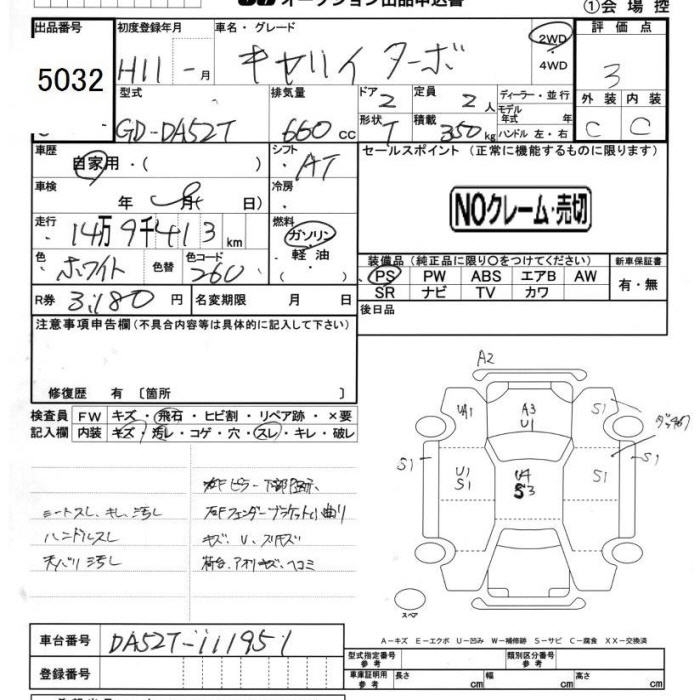 オークション出品申込書
①会場控
出品番号
5032
初度登録年月
H11 - 月
車名・グレード
キャリイ ターボ
2WD
・4WD
評価点
3
外装 内装
C C
型式
GD-DA52T
排気量
660 cc
ドア
2
形状
T
定員
2 人
積載
350 kg
ディーラー・並行
モデル年式 年
ハンドル 左・右
車歴
自家用・( )
シフト
AT
車検
年 月( 日)
冷房
走行
14万9千413 km
燃料
ガソリン
・軽油
・( )
色
ホワイト
色替
色コード
26U
R券
3,180 円
名変期限 月 日
セールスポイント (正常に機能するものに限ります)
NOクレーム・売切
装備品 (純正品に限り○をつけてください)
PS PW ABS エアB AW
SR ナビ TV カワ
新車保証書
有・無
後日品
注意事項申告欄 (不具合内容等は具体的に記入して下さい)
修復歴 有 〔箇所 〕
検査員記入欄
FW キズ・飛石・ヒビ割・リペア跡・×要
内装 キズ・汚レ・コゲ・穴・スレ・キレ・破レ
シートスレ、キレ、汚レ
ハンドルスレ
天バリ汚レ
右Fフェンダーブラケット小曲り
キズ、U、スリキズ
荷台、アオリキズ、ヘコミ
A2
UA1
A3
U1
S1
S1
U1
S1
U4
S3
S1
S1
スペア
A-キズ E-エクボ U-凹み W-補修跡 S-サビ C-腐食 XX-交換済
車台番号
DA52T-111951
登録番号
型式指定番号 参考
類別区分番号 参考
車庫証明用 参考
長さ cm
幅 cm
高さ cm